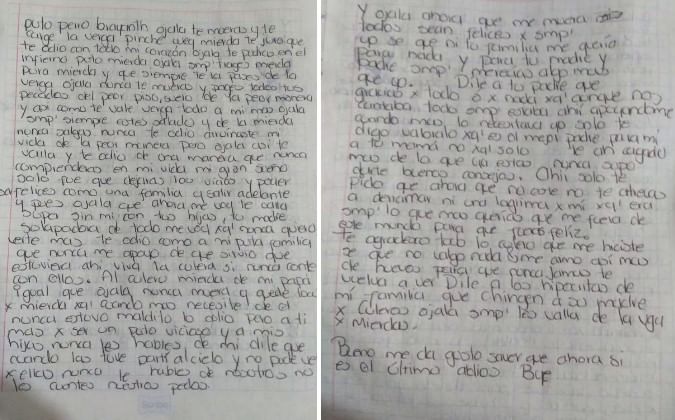 puto perro ojala te mueras y te
cargue la verga pinche mierda te juro que
te odio con todo mi corazon ojala te pudras en el
infierno puto mierda ojala smp' tragues mierda
pura mierda y que siempre te la pases de la
verga ojala nunca te mueras y pages todos tus
pecados del peor piso, suelo de la peor manera
y asi como te vale verga todo a mi no ojala
smp' siempre estes salado y de la mierda
nunca salgas nunca te odio arruinaste mi
vida de la peor manera pero ojala asi te
valla y te odio de una manera que nunca
comprenderas en mi vida mi gran sueño
solo fue que dejaras los vicios y poder
ser felices como una familia y salir adelante
y pues ojala que ahora me voy te valla
super sin mi con tus hijos, tu madre
solapadora de todo me voy xq' nunca quiero
verte mas te odio como a mi puta familia
que nunca me apoyo de que sirvio que
estuviera ahi, viva la culera si nunca conte
con ellos. Al culero mierda de mi papá
igual que ojala nunca muera y quede loco
x mierda xq' cuando mas necesite de el
nunca estuvo maldito lo odio pero a ti
mas x ser un puto vicioso y a mis
hijos nunca les hables de mi dile que
cuando las tuve parti al cielo y no pude ver
x ellas nunca le hables de nosotros no
les cuentes nuestros pedos.
Y ojala ahora que me muera
todos sean felices x smp'
yo se que ni tu familia me queria
para nada, y para tu madre y
padre smp' merecias algo mas
que yo. Dile a tu padre que
gracias x todo o x nada xq' aunque no
contaba todo smp estaba ahi apoyandome
cuando mas lo necesitaba yo solo te
digo valoralo xq' es el mejor padre para mi
a tu mamá no xq' solo te an cagado
mas de lo que ya estas nunca supo
darte buenos consejos. Ohii solo te
pido que ahora que no este no te atrevas
a derramar ni una lagrima x mi xq' era
smp' lo que mas querias que me fuera de
este mundo para que fueras feliz.
Te agradezco todo lo culero que me hiciste
se que no valgo nada y me amo asi mas
de hueva para que nunca jamas te
vuelva a ver Dile a los hipocritas de
mi familia que chingen a su madre
x culeros ojala smp' les valla de la vga
x mierdas.
Bueno me da gusto saver que ahora si
es el último adios Bye